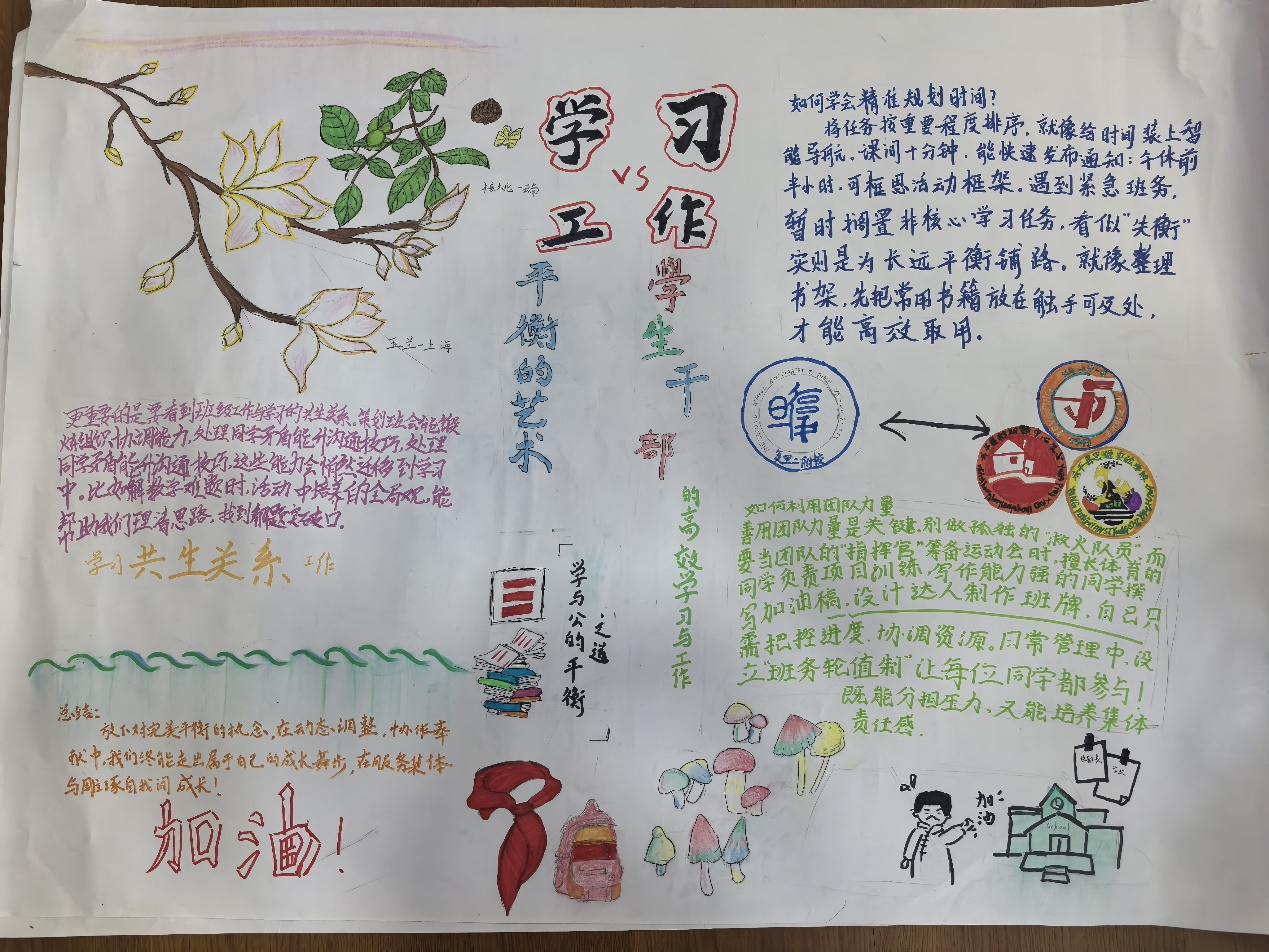 学习
vs
工作
平衡的艺术
學生干部
的高效学习与工作
玉兰-上海
如何学会精准规划时间?
将任务按重要程度排序,就像给时间装上智
能导航。课间十分钟,能快速发布通知;午休前
半小时,可框思活动框架。遇到紧急班务,
暂时搁置非核心学习任务,看似"失衡"
实则是为长远平衡铺路。就像整理
书架,先把常用书籍放在触手可及处,
才能高效取用。
更重要的是要看到班级工作与学习的共生关系。策划班会能锻
炼组织协调能力,处理同学矛盾能升沟通技巧,处理
同学矛盾能升沟通技巧,这些能力会悄然迁移到学习
中。比如解数学难题时,活动中培养的全局观,能
帮助我们理清思路,找到解题突破口。
学习共生关系工作
如何利用团队力量
善用团队力量是关键,别做孤独的"救火队员",而
要当团队的"指挥官"筹备运动会时,擅长体育的
同学负责项目训练,写作能力强的同学撰
写加油稿,设计达人制作班牌,自己只
需把控进度、协调资源。日常管理中,设
立"班务轮值制"让每位同学都参与!
既能分担压力,又能培养集体
责任感.
「学与公的平衡
之道」
总结:
放下对完美平衡的执念,在动态调整,协作奉
献中,我们终能走出属于自己的成长舞步,在服务集体
与雕琢自我间成长!
加油!
加油
School